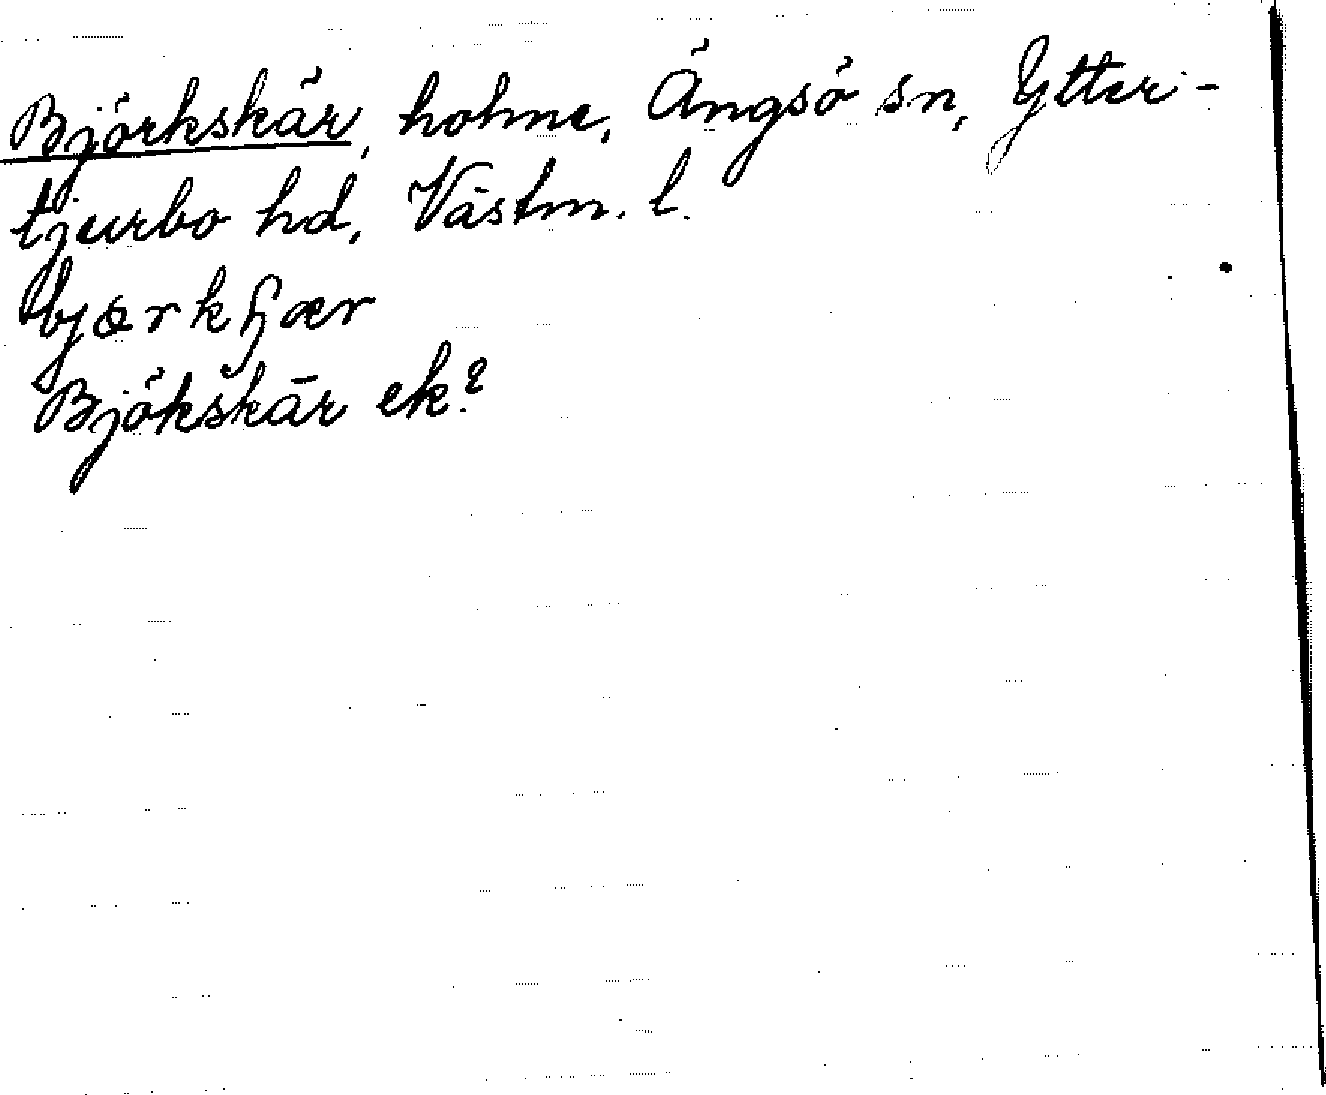 Björkskär, holme, Ängsö sn, Ytter-
tjurbo hd, Västm. l.
bjærkɧær
Bjökskär ek?